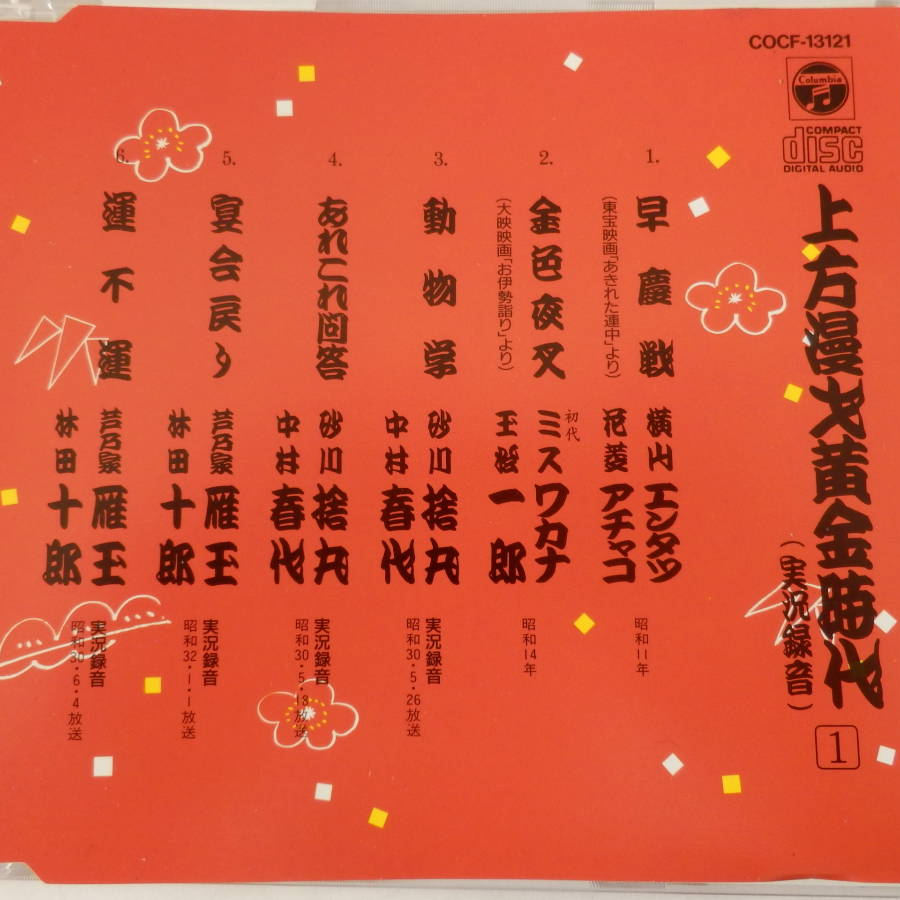 COCF-13121
Columbia
COMPACT
disc
DIGITAL AUDIO
上方漫才黄金時代
(実況録音)
1
1.
早慶戦
(東宝映画「あきれた連中」より)
横山エンタツ
花菱アチャコ
昭和11年
2.
金色夜叉
(大映映画「お伊勢詣り」より)
初代
ミスワカナ
玉松一郎
昭和14年
3.
動物学
砂川捨丸
中村春代
実況録音
昭和30・5・26放送
4.
あれこれ問答
砂川捨丸
中村春代
実況録音
昭和30・5・13放送
5.
宴会戻り
芦乃家雁玉
林田十郎
実況録音
昭和32・1・1放送
6.
運不運
芦乃家雁玉
林田十郎
実況録音
昭和30・6・4放送